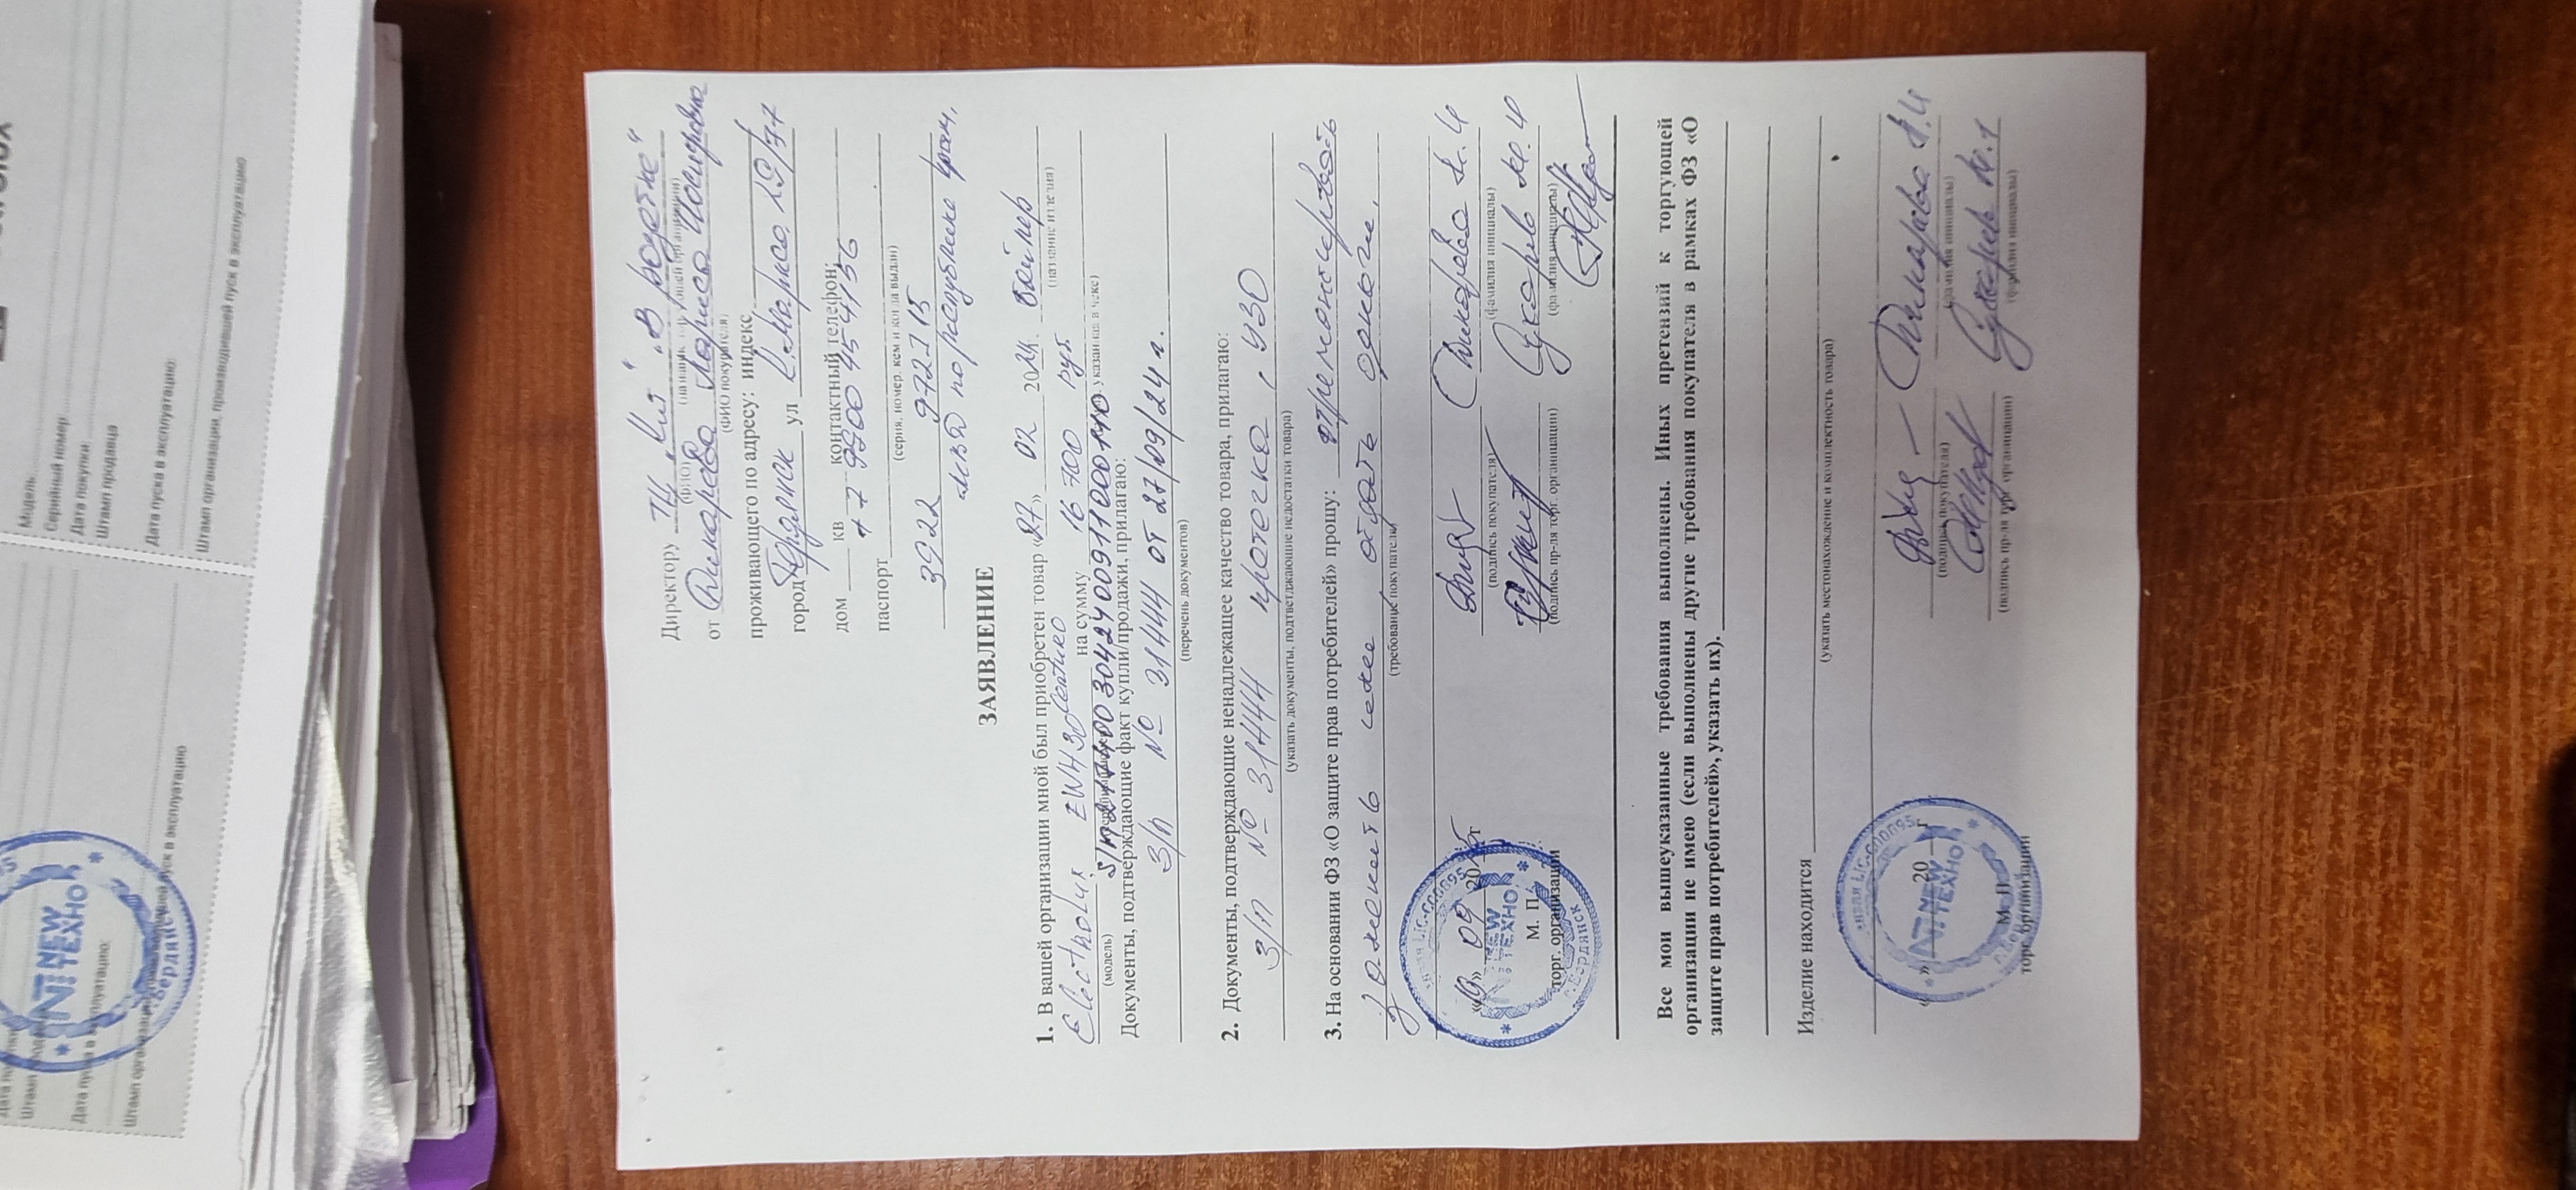 Модель:
Серийный номер
Дата покупки:
Штамп продавца
Дата пуска в эксплуатацию:
Штамп организации, производившей пуск в эксплуатацию
Дата пуска в эксплуатацию:
NEW
ТЕХНО
Бердянск
Директору ТЦ "Кит" "В розетке"
(ФИО)
от Дикарева Лариса
(ФИО покупателя)
проживающего по адресу: индекс
город Бердянск ул К.Маркса 29/37
дом кв контактный телефон:
+7 9900 45 41 36
паспорт
(серия, номер, кем и когда выдан)
3922 972715
по республике
ЗАЯВЛЕНИЕ
1. В вашей организации мной был приобретен товар «27» 02 2024. Бойлер
(название изделия)
Electrolux EWH 30 на сумму 16 700 руб
(модель)
Документы, подтверждающие факт купли/продажи, прилагаю:
З/п № 31444 от 27/09/24 г.
(перечень документов)
2. Документы, подтверждающие ненадлежащее качество товара, прилагаю:
З/п № 31444 протечка, УЗО
(указать документы, подтверждающие недостатки товара)
3. На основании ФЗ «О защите прав потребителей» прошу: отремонтировать
отдать деньги.
(требование покупателя)
Дикарева Л. И
(подпись покупателя) (фамилия инициалы)
(подпись пр-ля торг. организации) (фамилия инициалы)
М. П.
торг. организации
NEW
ТЕХНО
г.Бердянск
Все мои вышеуказанные требования выполнены. Иных претензий к торгующей
организации не имею (если выполнены другие требования покупателя в рамках ФЗ «О
защите прав потребителей», указать их).
Изделие находится
(указать местонахождение и комплектность товара)
Дикарева Л.И
(подпись покупателя) (фамилия инициалы)
« » 20 г
(подпись пр-ля торг. организации) (фамилия инициалы)
М. П.
торг. организации
NEW
ТЕХНО